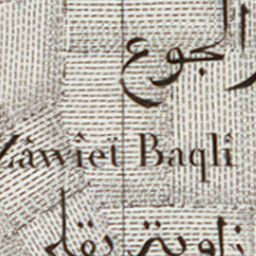 الجوع
Zâwiet Baqli
زاوية بقلي